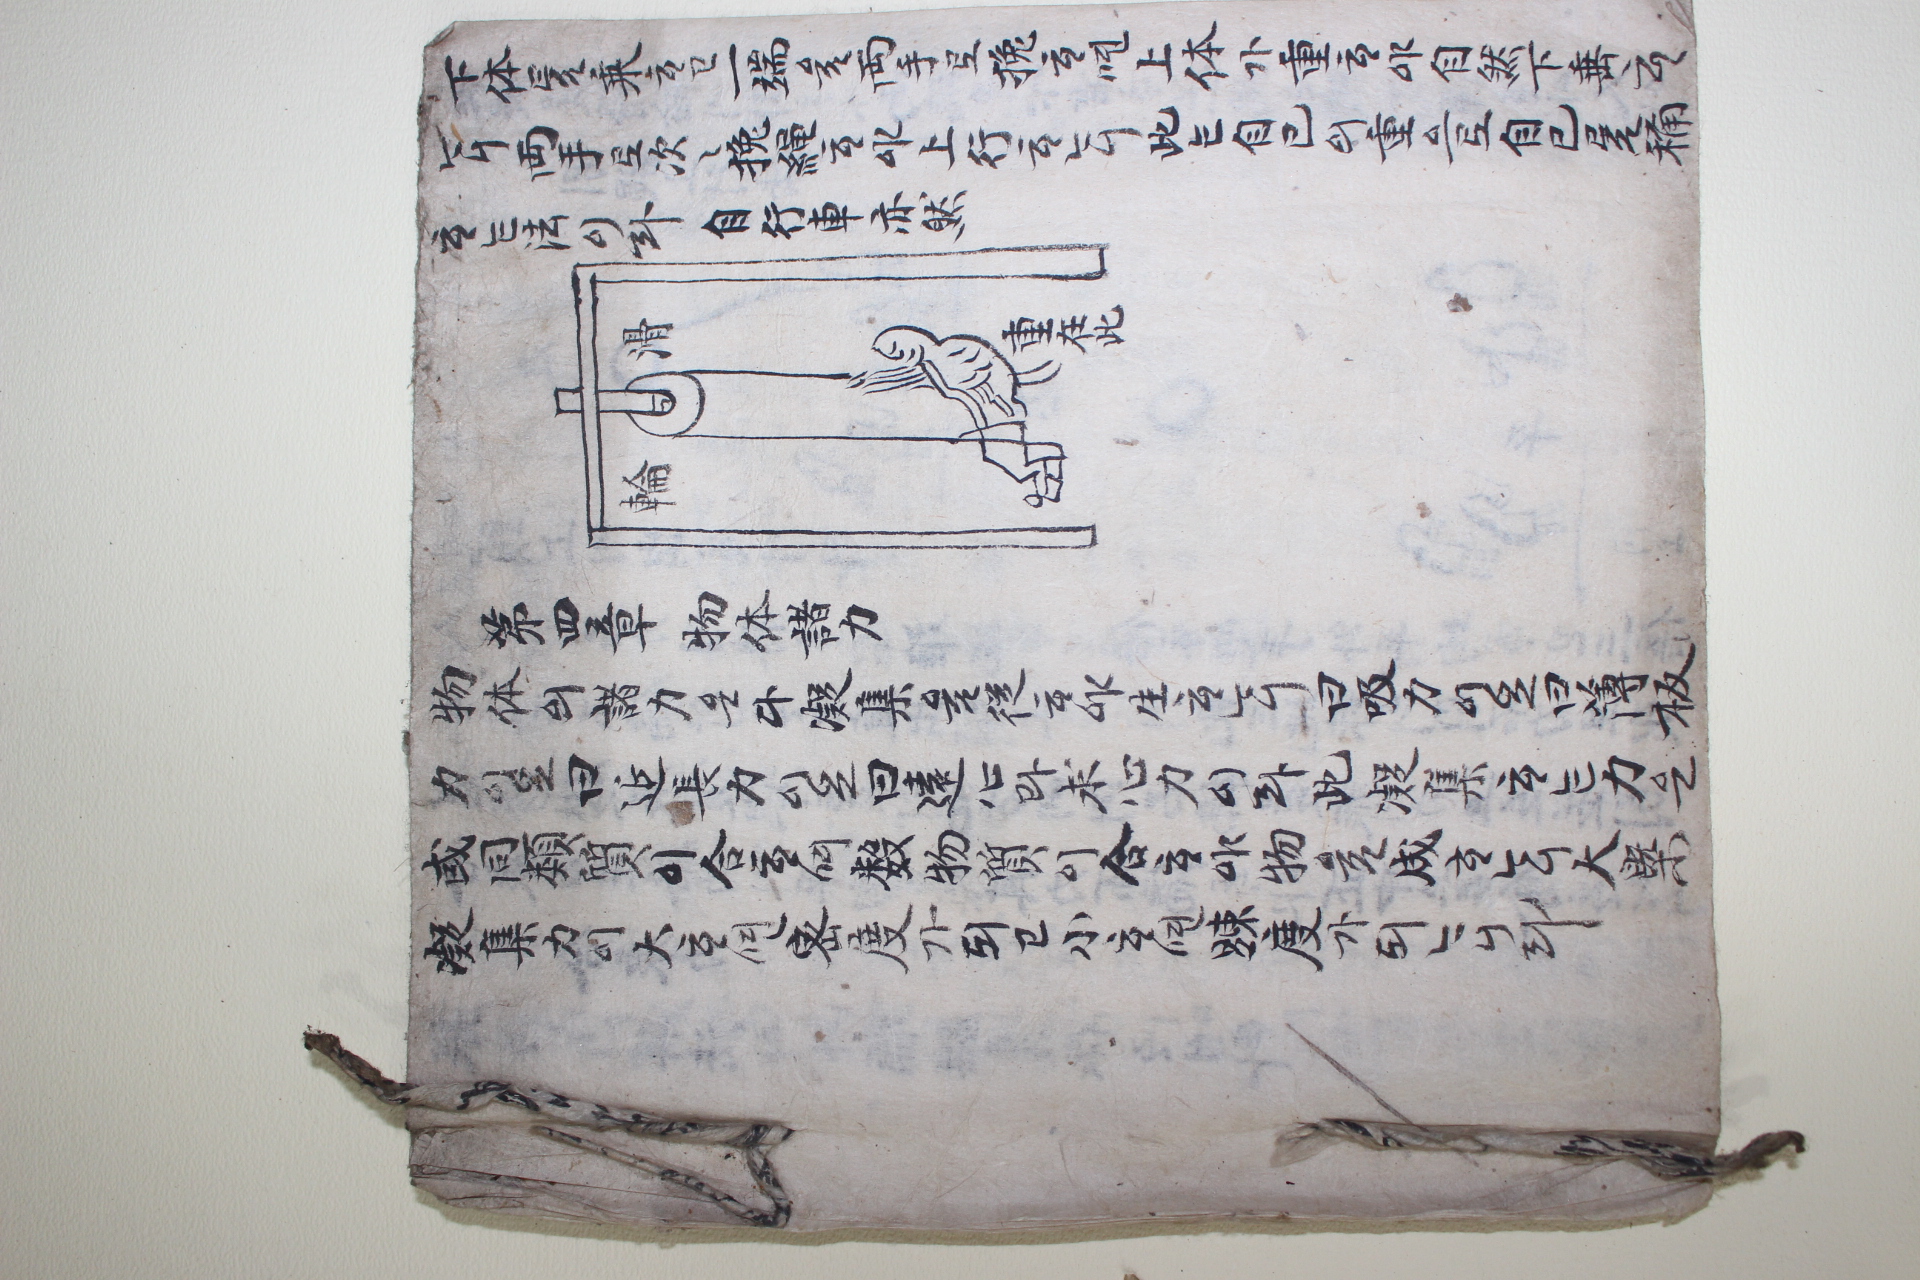 下体를乘ᄒᆞ고一端을両手로挽ᄒᆞ면上体가重ᄒᆞ야自然下垂ᄒᆞ
ᄂᆞ니両手로次〻挽繩ᄒᆞ야上行ᄒᆞᄂᆞ니此ᄂᆞᆫ自己의重으로自己를
ᄒᆞᄂᆞᆫ法이라 自行車亦然
滑輪
重在此
第四章 物体諸力
物体의諸力은다凝集을從ᄒᆞ야生ᄒᆞᄂᆞ니曰吸力이오曰薄板
力이오曰近集力이오曰達 力이라此凝集ᄒᆞᄂᆞᆫ力은
或同類質이合ᄒᆞ며數物質이合ᄒᆞ야物을成ᄒᆞᄂᆞ니大槩
凝集力이大ᄒᆞ면密度가되고小ᄒᆞ면踈度가되ᄂᆞ니라